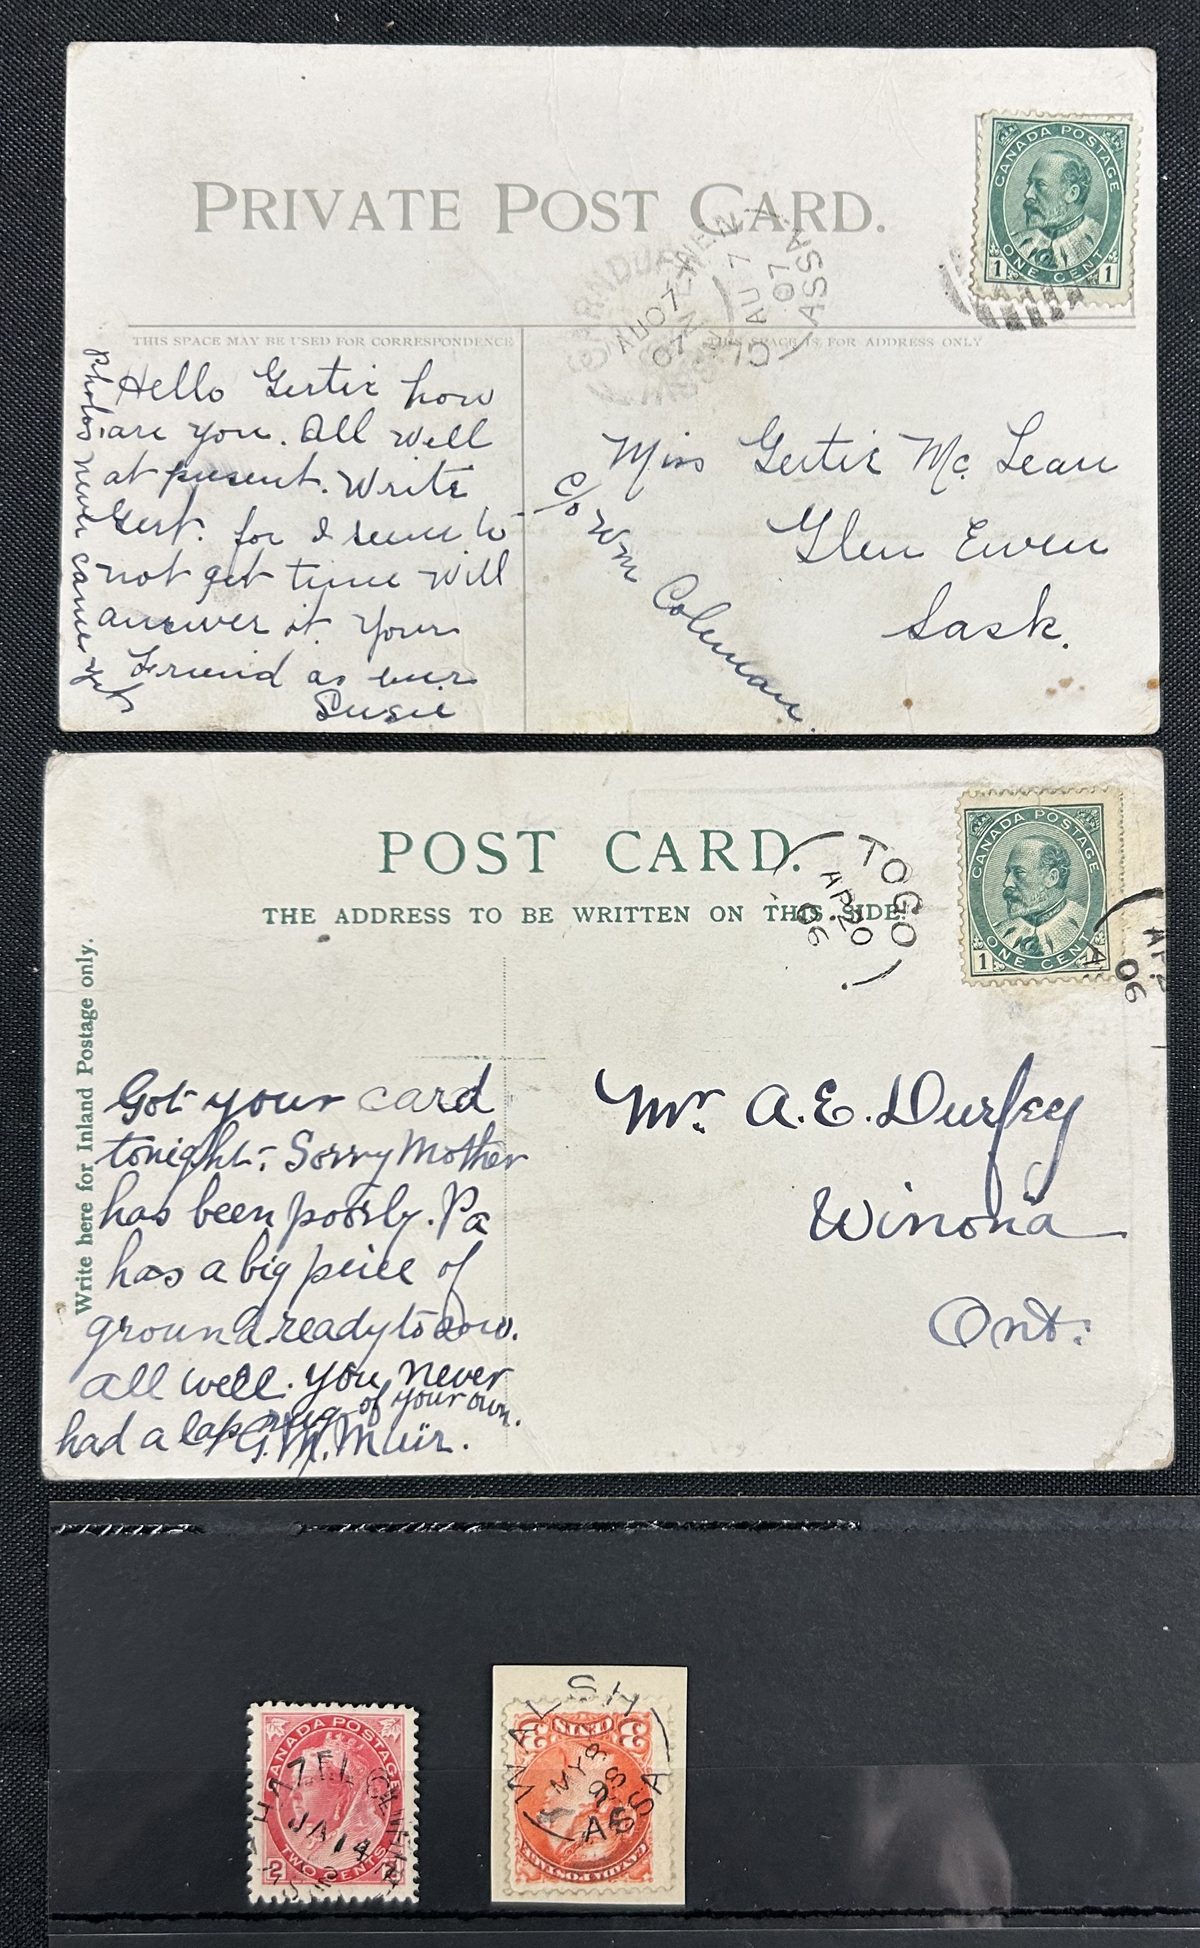 PRIVATE POST CARD.
CANADA POSTAGE
1 ONE CENT 1
AU 7
07
ASSA.
AU 7
07
THIS SPACE MAY BE USED FOR CORRESPONDENCE
THIS SPACE IS FOR ADDRESS ONLY
Hello Gertie how
are you. All well
at present. Write
Gert. for I seem to
not get time will
answer it. Your
Friend as ever
Susie
Photos never came yet
Miss Gertie Mc Lean
Glen Ewen
Sask.
c/o Wm Coleman
POST CARD.
THE ADDRESS TO BE WRITTEN ON THIS SIDE
TOGO
AP 20
06
CANADA POSTAGE
1 ONE CENT
AP 2
06
Write here for Inland Postage only.
Got your card
tonight. Sorry Mother
has been poorly. Pa
has a big peice of
ground ready to sow.
all well. You never
had a lap rug of your own.
G. M. Muir.
Mr. A. E. Durfey
Winona
Ont.
CANADA POSTAGE
2 TWO CENTS 2
HAZEL
JA 14
WALSH
MY 8
ASSA
3 CENTS 3